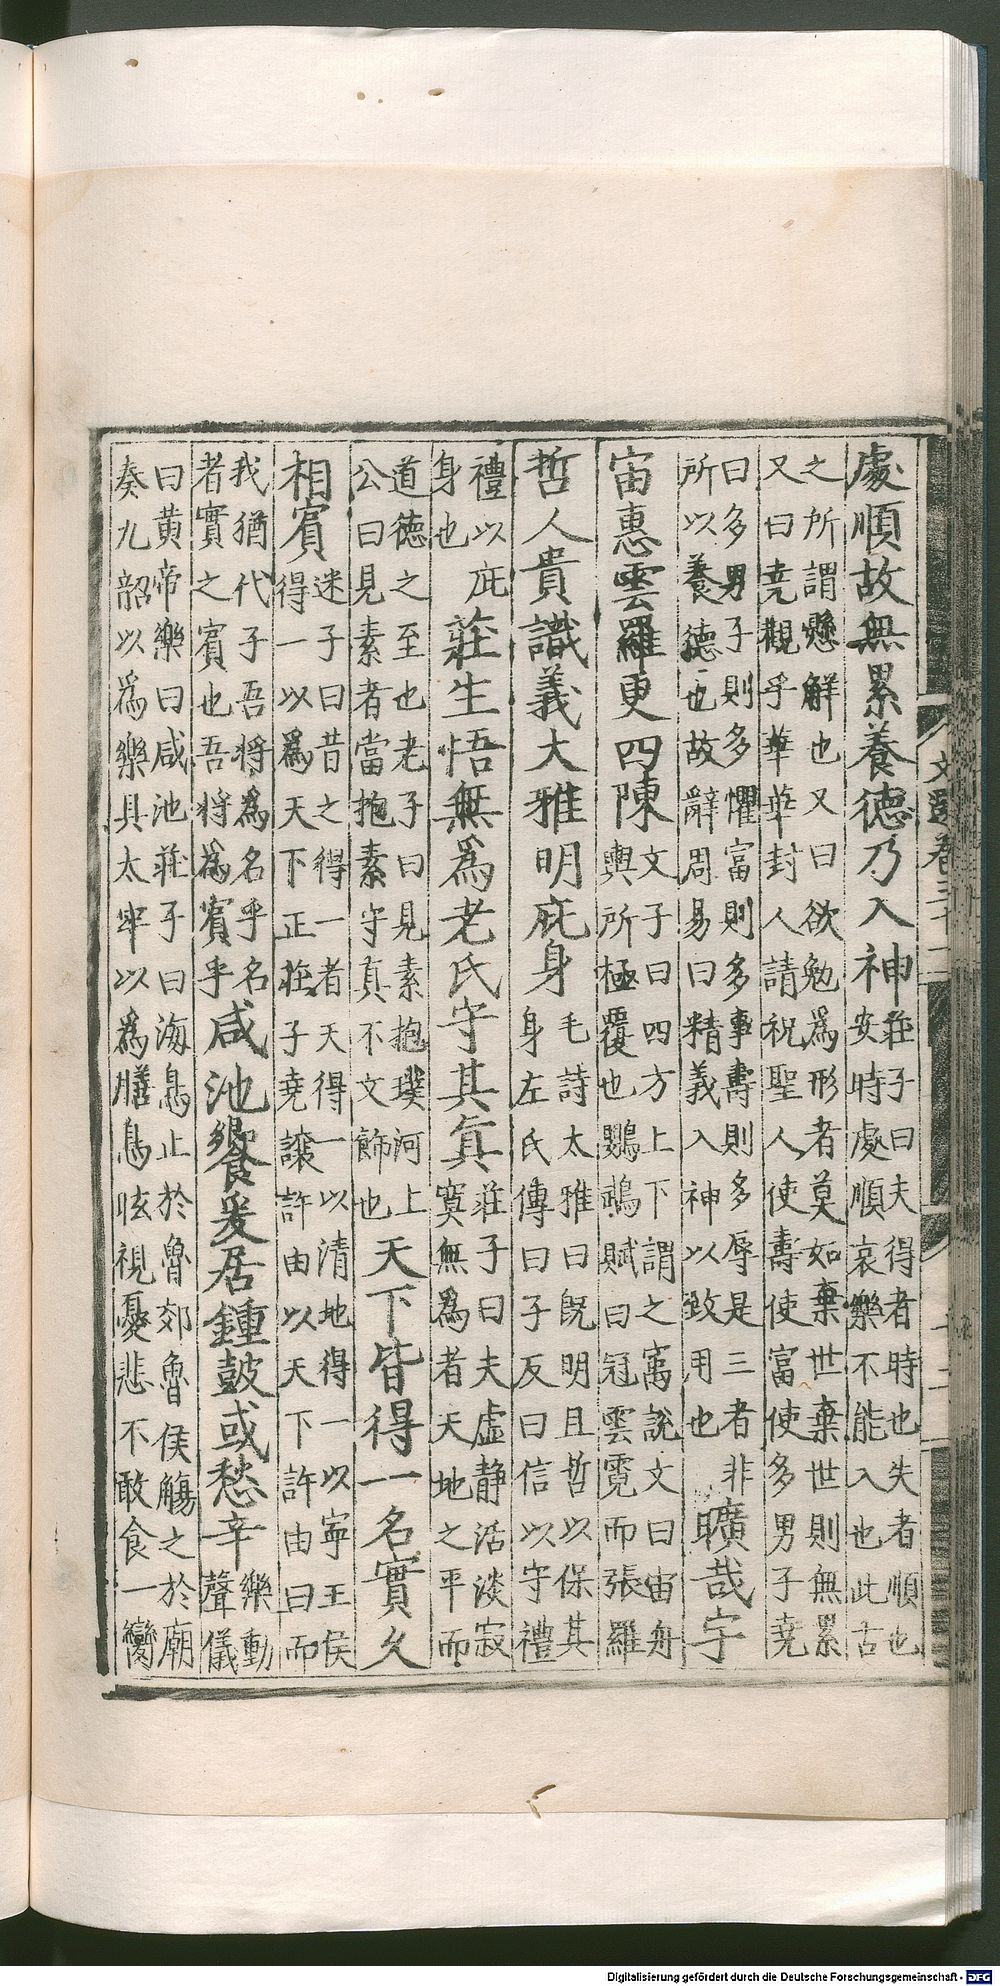 處順故無累養德乃入神
莊子曰夫得者時也失者順也
安時處順哀樂不能入也此古
之所謂懸解也又曰欲勉爲形者莫如棄世棄世則無累
又曰堯觀乎華華封人請祝聖人使壽使富使多男子堯
曰多男子則多懼富則多事壽則多辱是三者非
所以養德也故辭周易曰精義入神以致用也
曠哉宇
宙惠雲羅更四陳
文子曰四方上下謂之㝢說文曰宙舟
輿所極覆也鸚鵡賦曰冠雲霓而張羅
哲人貴識義大雅明庇身
毛詩太雅曰旣明且哲以保其
身左氏傳曰子反曰信以守禮
禮以庇
身也
莊生悟無爲老氏守其眞
莊子曰夫虛静活淡寂
寞無爲者天地之平而
道德之至也老子曰見素抱璞河上
公曰見素者當抱素守真不文飾也
天下皆得一名實久
相賓
迷子曰昔之得一者天得一以清地得一以寧王侯
得一以爲天下正莊子堯讓許由以天下許由曰而
我猶代子吾將爲名乎名
者實之賓也吾將爲賓乎
咸池饗爰居鍾鼓或愁辛
樂動
聲儀
曰黃帝樂曰咸池莊子曰海鳥止於魯郊魯侯觴之於廟
奏九韶以爲樂具太牢以爲膳鳥眩視憂悲不敢食一臠
文選卷三十一
Digitalisierung gefördert durch die Deutsche Forschungsgemeinschaft - DFG